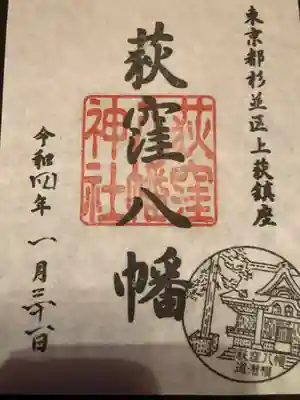 東京都杉並区上荻鎮座
荻窪八幡
荻窪
八幡
神社
令和四年 一月三十一日
荻窪八幡
道灌槇